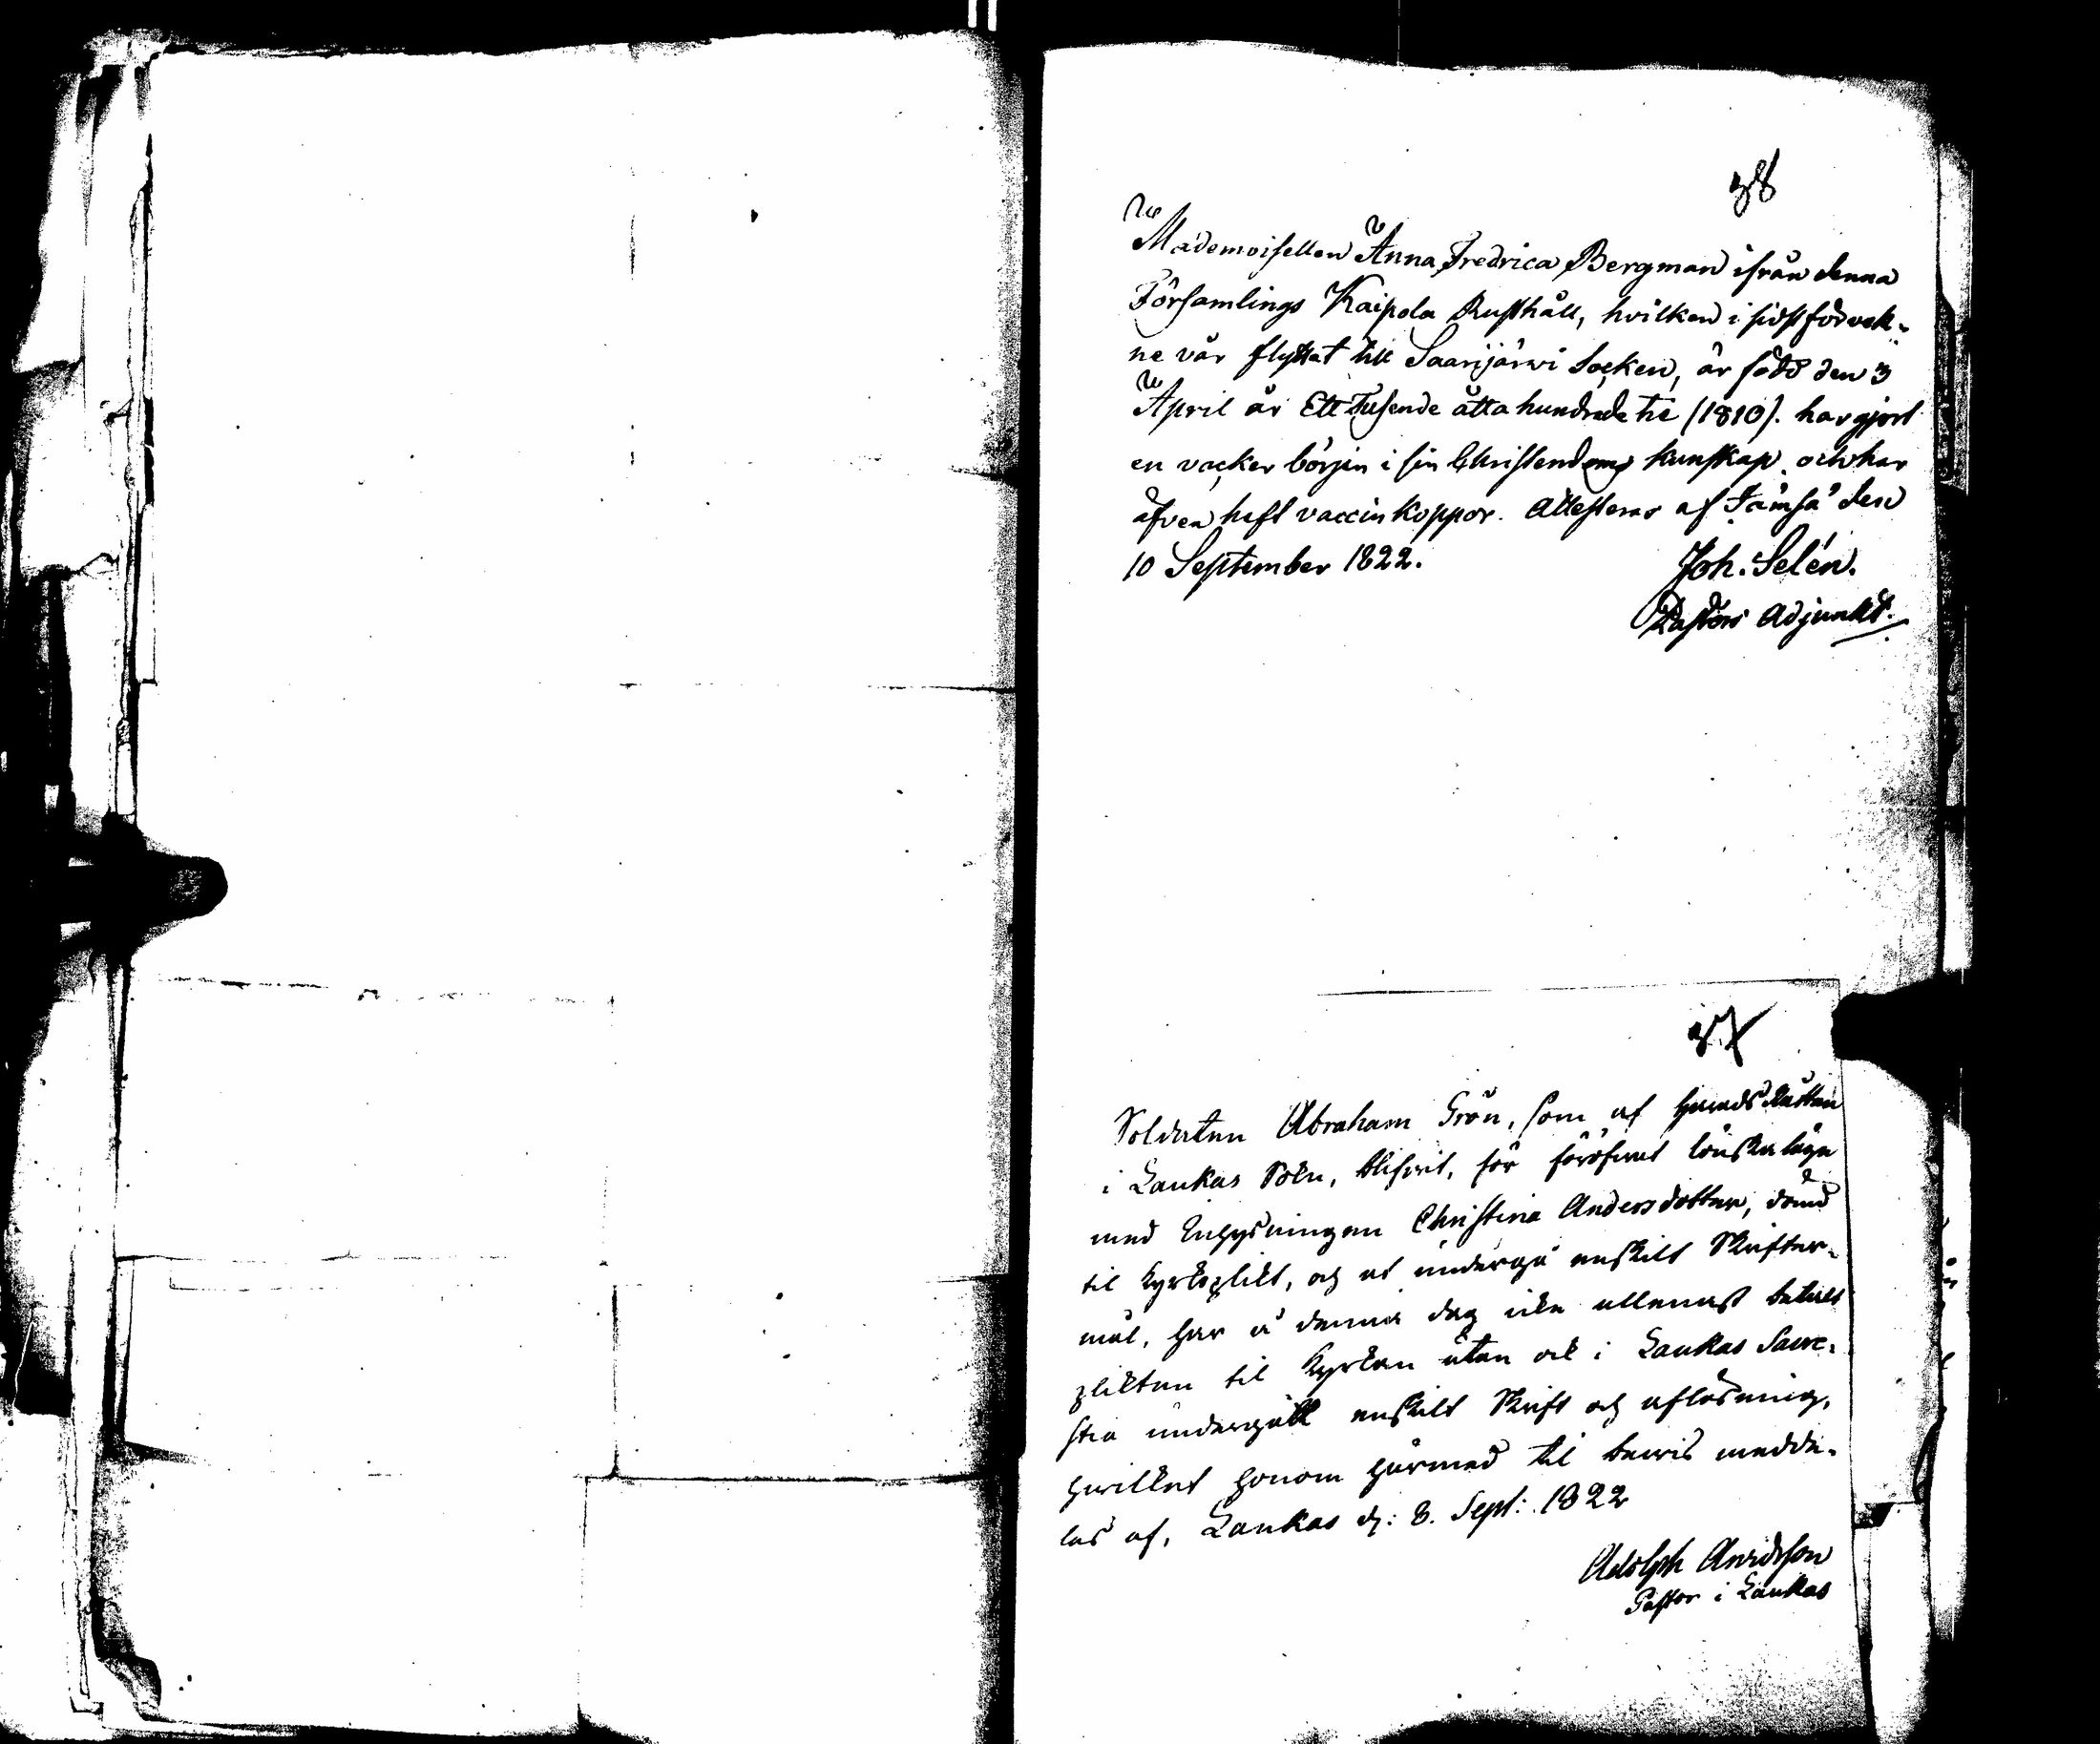 38
Mademoisellen Anna Fredrica Bergman ifrån denna
Församlings Kaipola Rusthåll, hvilken i sidstförvek-
ne vår flyttat till Saarijärwi Socken, är född den 3
April år Ett Tusende åtta hundrade tie (1810). har gjort
en vacker början i sin Christendoms kunskap och har
äfven haft vaccin koppor. Attesteras af Jämsä den
10 September 1822.
Joh. Selén.
Pastors Adjunkt.
37
Soldaten Abraham Grön, som af Häradsrätten
i Laukas Sokn, blifvit, för föröfwat lönskaläge
med Inhysningen Christina Andersdotter, dömd
til Kyrkoplikt, och at undergå enskilt Skrifter-
mål, har å denna dag icke allenast betalt
plikten til Kyrkan utan ock i Laukas Sacri-
stia undergått enskilt Skrift och aflösning,
hwilket honom härmed til bewis medde-
las af, Laukas d: 8. Sept: 1822
Adolph Anderson
Pastor i Laukas